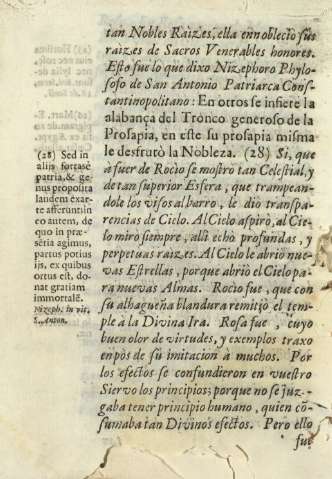 tan Nobles Raizes, ella ennobleciò sus
raizes de Sacros Venerables honores.
Esto fue lo que dixo Nizephoro Phylo-
sofo de San Antonio Patriarca Cons-
tantinopolitano: En otros se infiere la
alabança del Tronco generoso de la
Prosapia, en este su prosapia misma
le desfrutò la Nobleza. (28) Si, que
à fuer de Rocìo se mostrò tan Celestial, y
de tan superior Esfera, que trampean-
dole los visos al barro, le dio transpa-
rencias de Cielo. Al Cielo aspirò, al Cie-
lo mirò siempre, allì echò profundas, y
perpetuas raizes. Al Cielo le abriò nue-
vas Estrellas, porque abriò el Cielo pa-
ra nuevas Almas. Rocìo fue, que con
su alhagueña blandura remitiò el tem-
ple à la Divina Ira. Rosa fue, cuyo
buen olor de virtudes, y exemplos traxo
en pòs de su imitacion à muchos. Por
los efectos se confundieron en vuestro
Siervo los principios; porque no se juz-
gaba tener principio humano, quien cõ-
sumaba tan Divinos efectos. Pero ello
fue
(28) Sed in
alijs fortasse
patria, & ge-
nus proposita
laudem exàr-
te afferunt: in
eo autem, de
quo in præ-
sētia agimus,
partus potius
ijs, ex quibus
ortus est, do-
nat gratiam
immortalē.
Nizeph. in vit.
S. Anton.